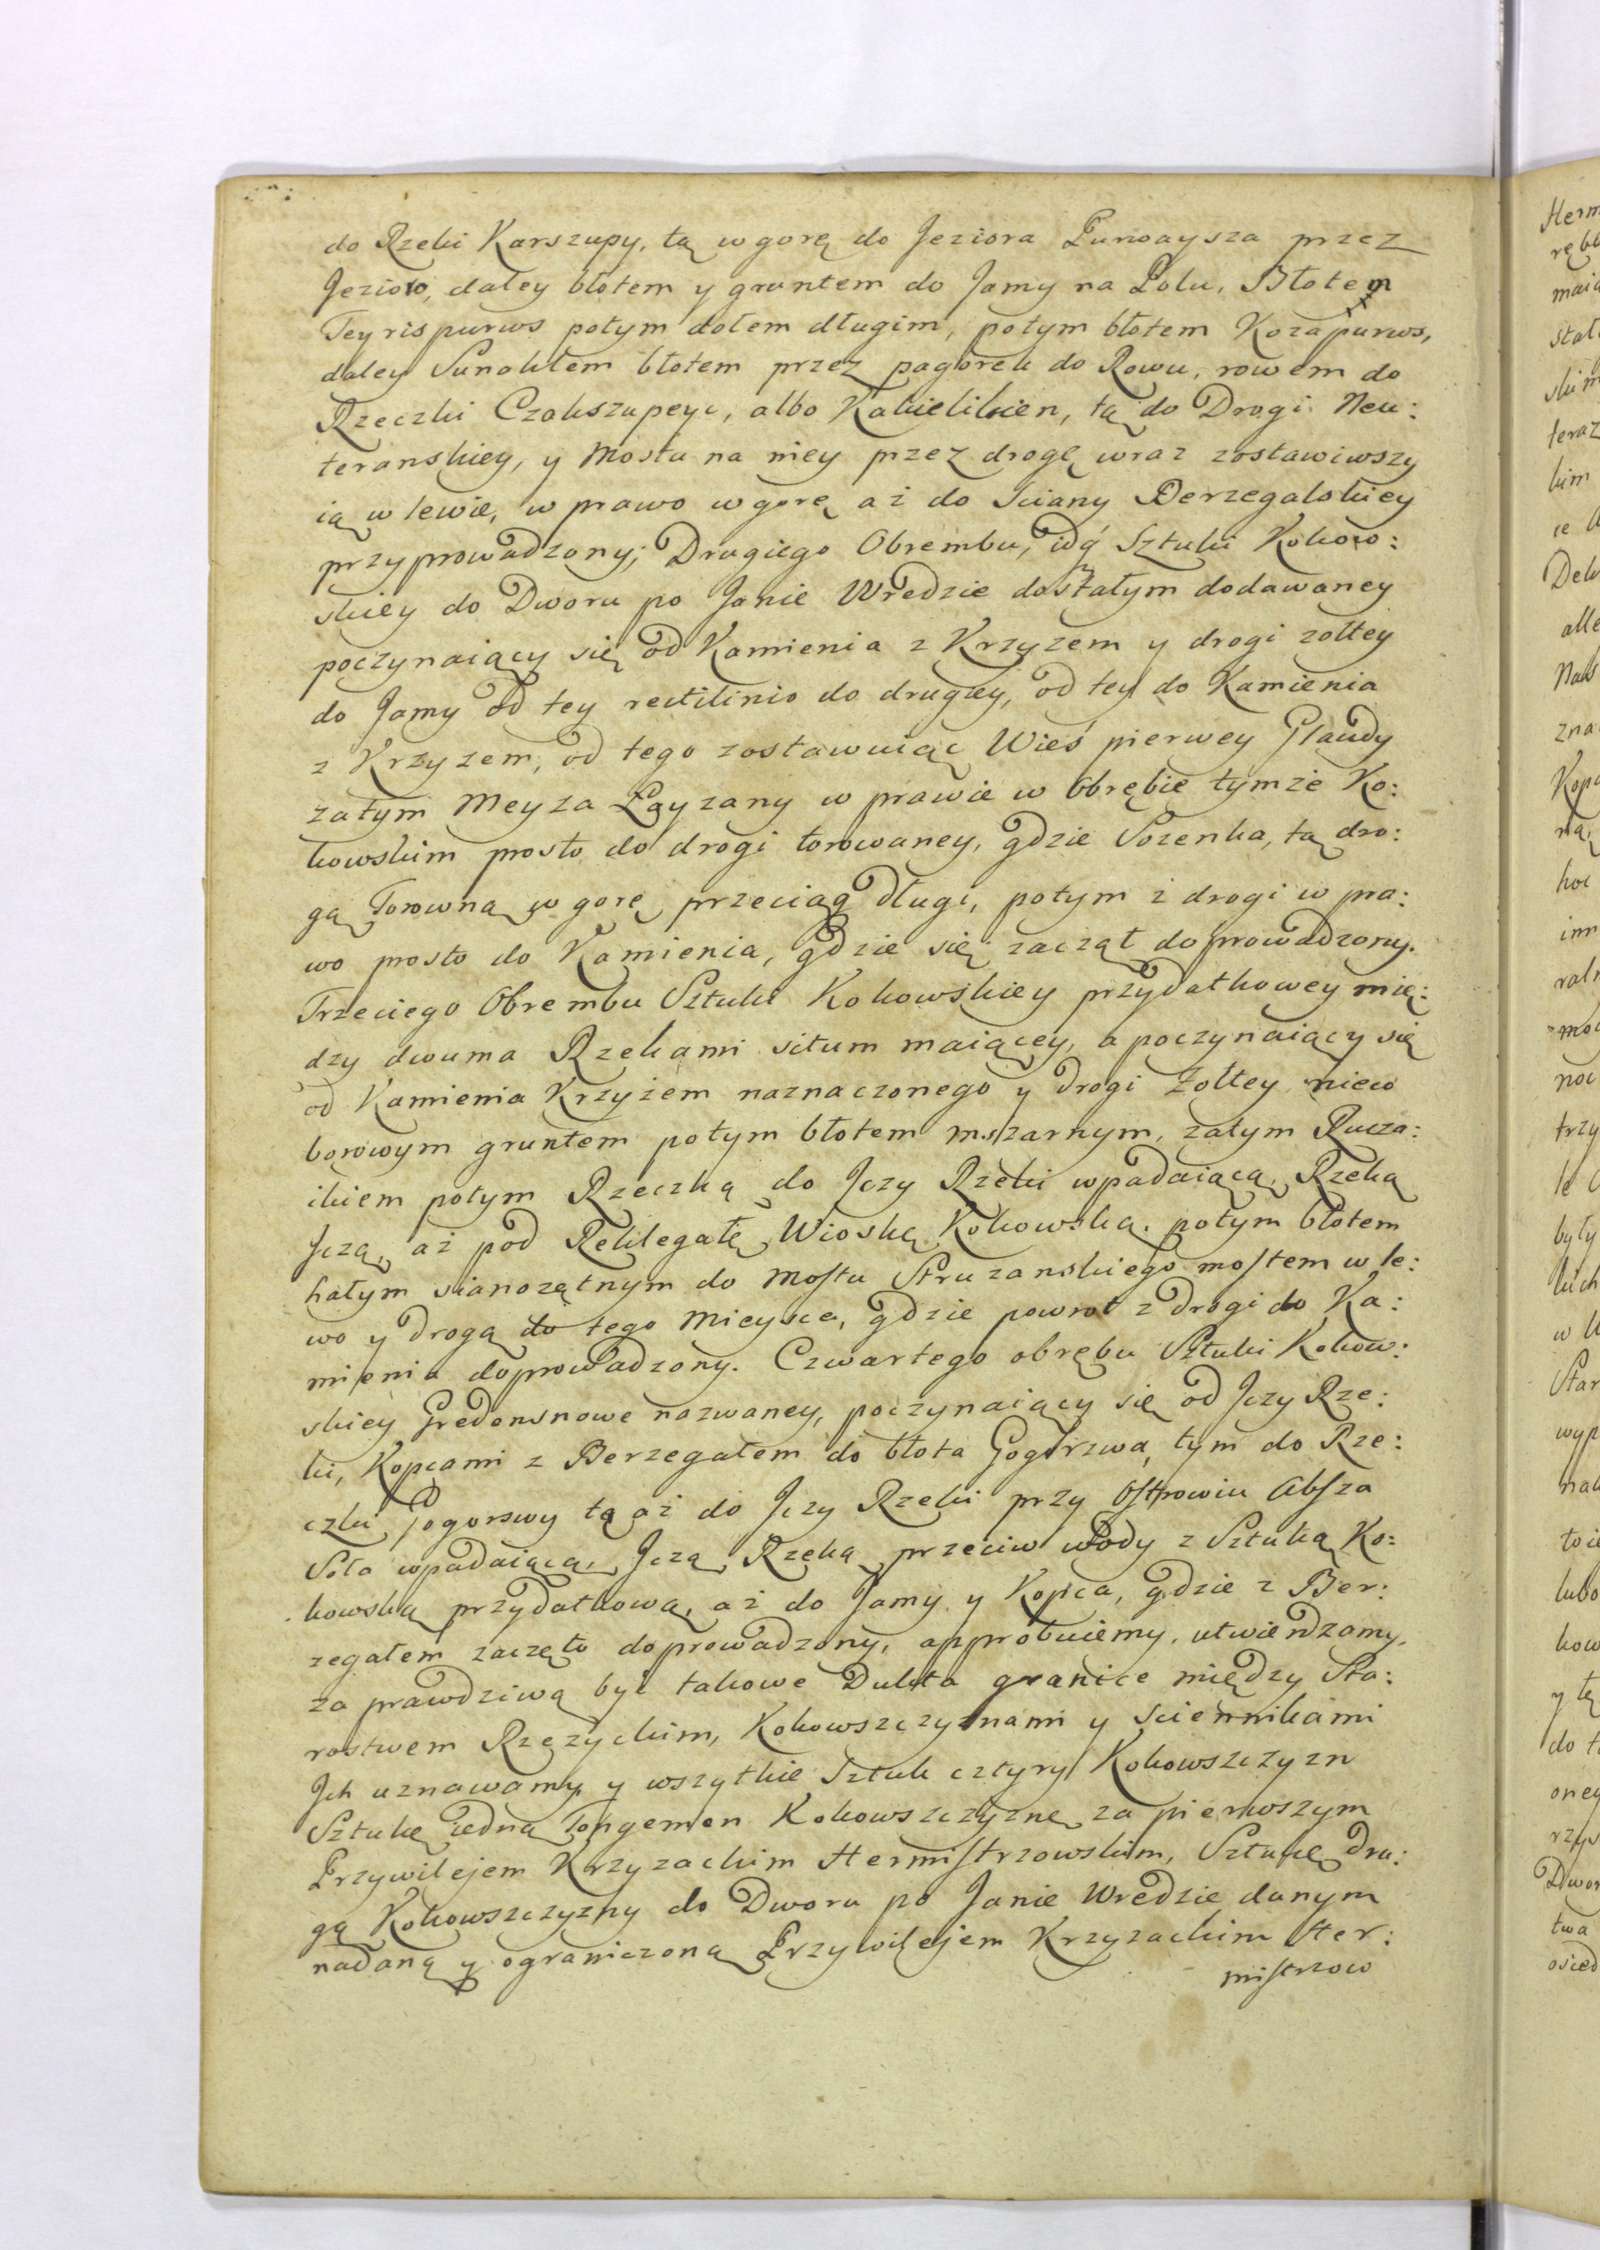 do Rzeki Karszupy, tą w gorę do Jeziora Purwaysza przez
Jezioro, daley błotem y gruntem do Jamy na Polu, Błotem
Teyrispurws potym dołem długim, potym błotem Kozapurws,
daley Sunokłem błotem przez pagorek do Rowu, rowem do
Rzeczki Czakszupeyc, albo Kakielikien, tą do Drogi Neu:
teranskiey, y Mostu na niey przez drogę wraz zostawiwszy
ią w lewie, w prawo w gorę aż do Sciany Berzegalskiey
przyprowadzony; Drugiego Obrembu, idq́ Sztuki Kokow:
skiey do Dworu po Janie Wredzie dostałym dodawaney
poczynaiący się od Kamienia z Krzyzem y drogi zołtey
do Jamy od tey rectilinio do drugiey, od tey do Kamienia
z Krzyzem, od tego zostawuiąc Wieś pierwey Glaudy
zatym Meyza Łayzany w prawie w Obrębie tymże Ko:
kowskim prosto do drogi torowaney, gdzie Sozenka, tą dro:
gą Torowną w gorę przeciąg długi, potym z drogi w pra:
wo prosto do Kamienia, gdzie się zaczął doprowadzony.
Trzeciego Obrembu Sztuki Kokowskiey przydatkowey mię:
dzy dwuma Rzekami situm maiącey, a poczynaiący się
od Kamienia Krzyżem naznaczonego y drogi Zołtey nieco
borowym gruntem potym błotem mszarnym, zatym Rucza:
ikiem potym Rzeczką do Jczy Rzeki wpadaiącą, Rzeką
Jczą, aż pod Reklegalę Wioskę Kokowską, potym błotem
hałym sianozętnym do Mostu Struzanskiego mostem w le:
wo y drogą do tego Mieysca, gdzie powrot z drogi do Ka:
mienia doprowadzony. Czwartego obrębu Sztuki Kokow:
skiey Gredensnowe nazwaney, poczynaiący się od Jczy Rze:
ki, Kopcami z Berzegałem do błota Gogorzwa, tym do Rze:
czki Pogorswy tą aż do Jczy Rzeki przy Ostrowiu Absza
Sola wpadaiącą, Jczą Rzeką przeciw wody z Sztuką Ko:
kowską przydatkową, aż do Jamy y Kopca, gdzie z Ber:
zegałem zaczęto doprowadzony, approbuiemy, utwierdzamy,
za prawdziwą być takowe Dukta granice między Sta:
rostwem Rzezyckim, Kokowszczyznami y Sciennikami
Jch uznawamy, y wszytkie Sztuk cztyry Kokowszczyzn
Sztukę iedną Tongemon Kokowszczyznę za pierwszym
Przywilejem Krzyzackim Hermistrzowskim, Sztukę dru:
gą Kokowszczyzny do Dworu po Janie Wredzie danym
nadaną y ograniczoną Przywilejem Krzyzackim Her:
mistrzow